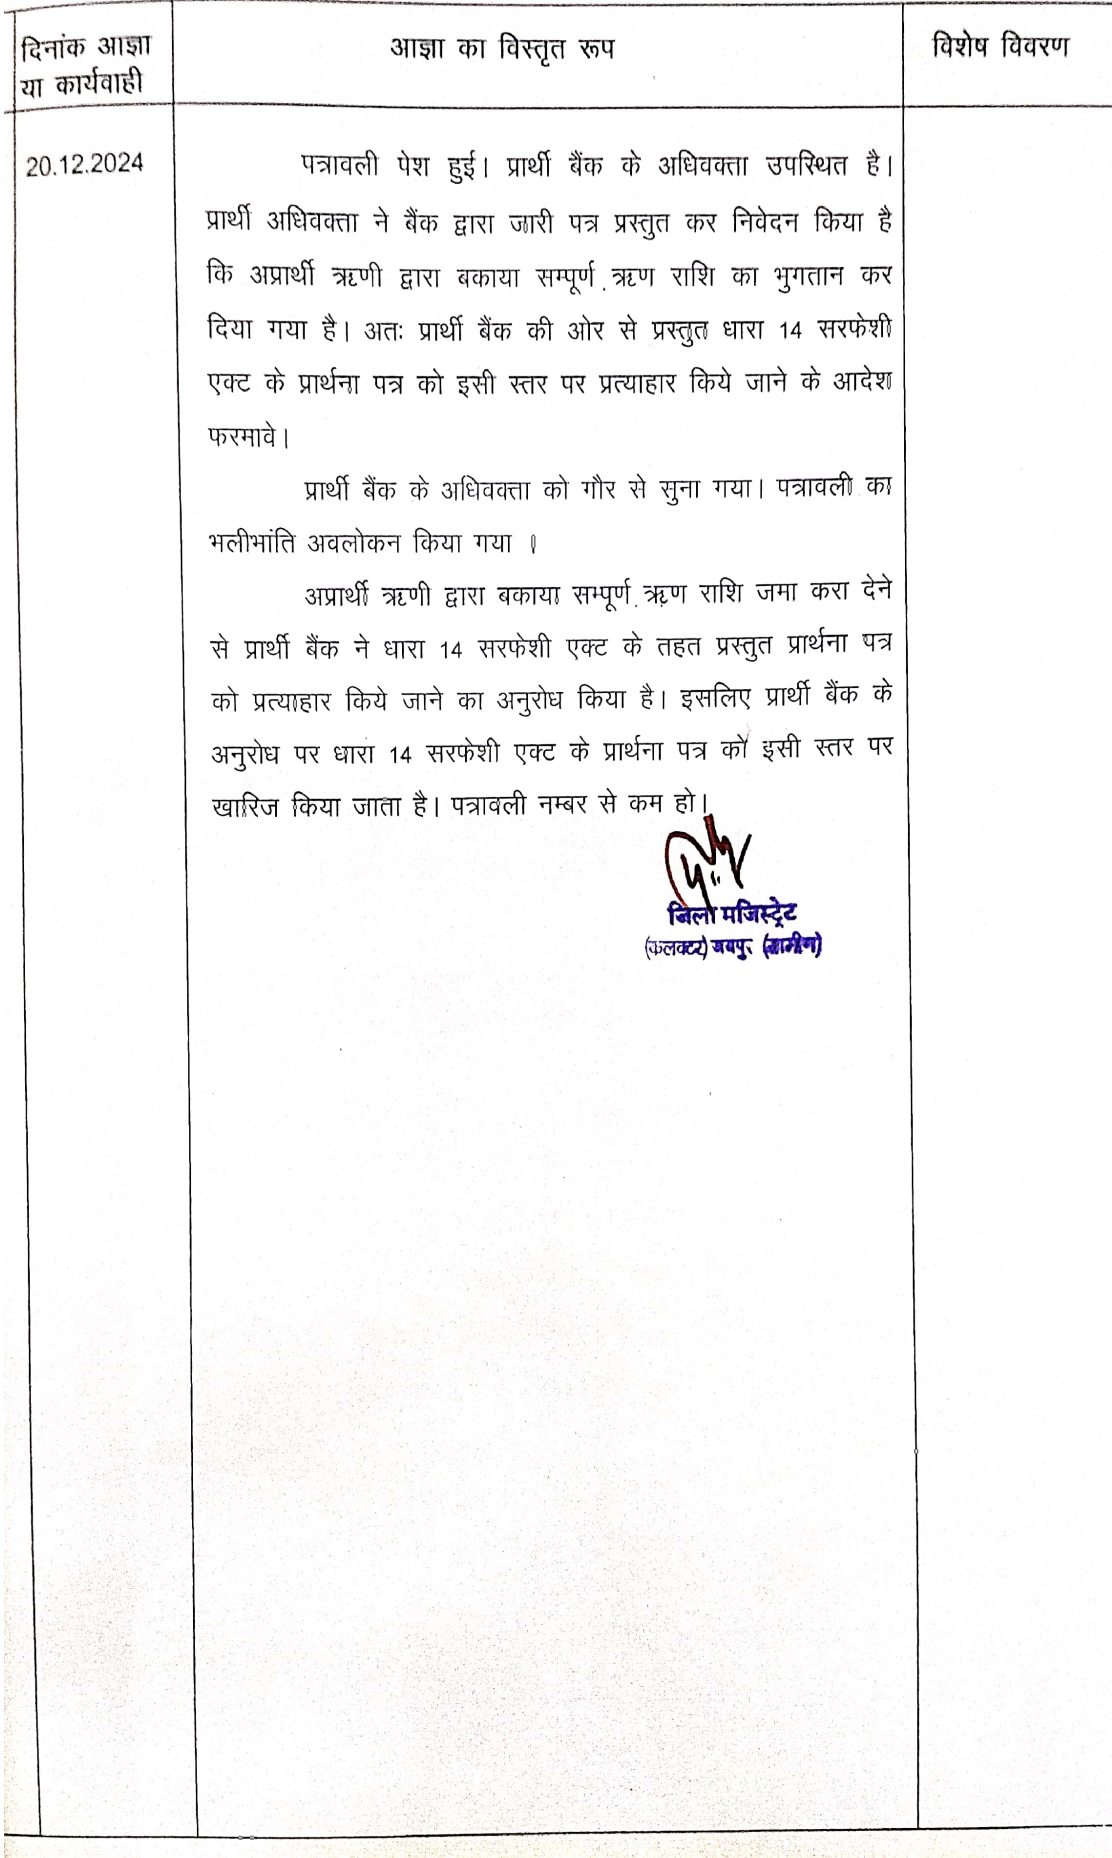 दिनांक आज्ञा
या कार्यवाही
आज्ञा का विस्तृत रूप
विशेष विवरण
20.12.2024
पत्रावली पेश हुई। प्रार्थी बैंक के अधिवक्ता उपस्थित है।
प्रार्थी अधिवक्ता ने बैंक द्वारा जारी पत्र प्रस्तुत कर निवेदन किया है
कि अप्रार्थी ऋणी द्वारा बकाया सम्पूर्ण ऋण राशि का भुगतान कर
दिया गया है। अतः प्रार्थी बैंक की ओर से प्रस्तुत धारा 14 सरफेशी
एक्ट के प्रार्थना पत्र को इसी स्तर पर प्रत्याहार किये जाने के आदेश
फरमावे।
प्रार्थी बैंक के अधिवक्ता को गौर से सुना गया। पत्रावली का
भलीभांति अवलोकन किया गया ।
अप्रार्थी ऋणी द्वारा बकाया सम्पूर्ण ऋण राशि जमा करा देने
से प्रार्थी बैंक ने धारा 14 सरफेशी एक्ट के तहत प्रस्तुत प्रार्थना पत्र
को प्रत्याहार किये जाने का अनुरोध किया है। इसलिए प्रार्थी बैंक के
अनुरोध पर धारा 14 सरफेशी एक्ट के प्रार्थना पत्र को इसी स्तर पर
खारिज किया जाता है। पत्रावली नम्बर से कम हो।
जिला मजिस्ट्रेट
(कलक्टर) जयपुर (ग्रामीण)